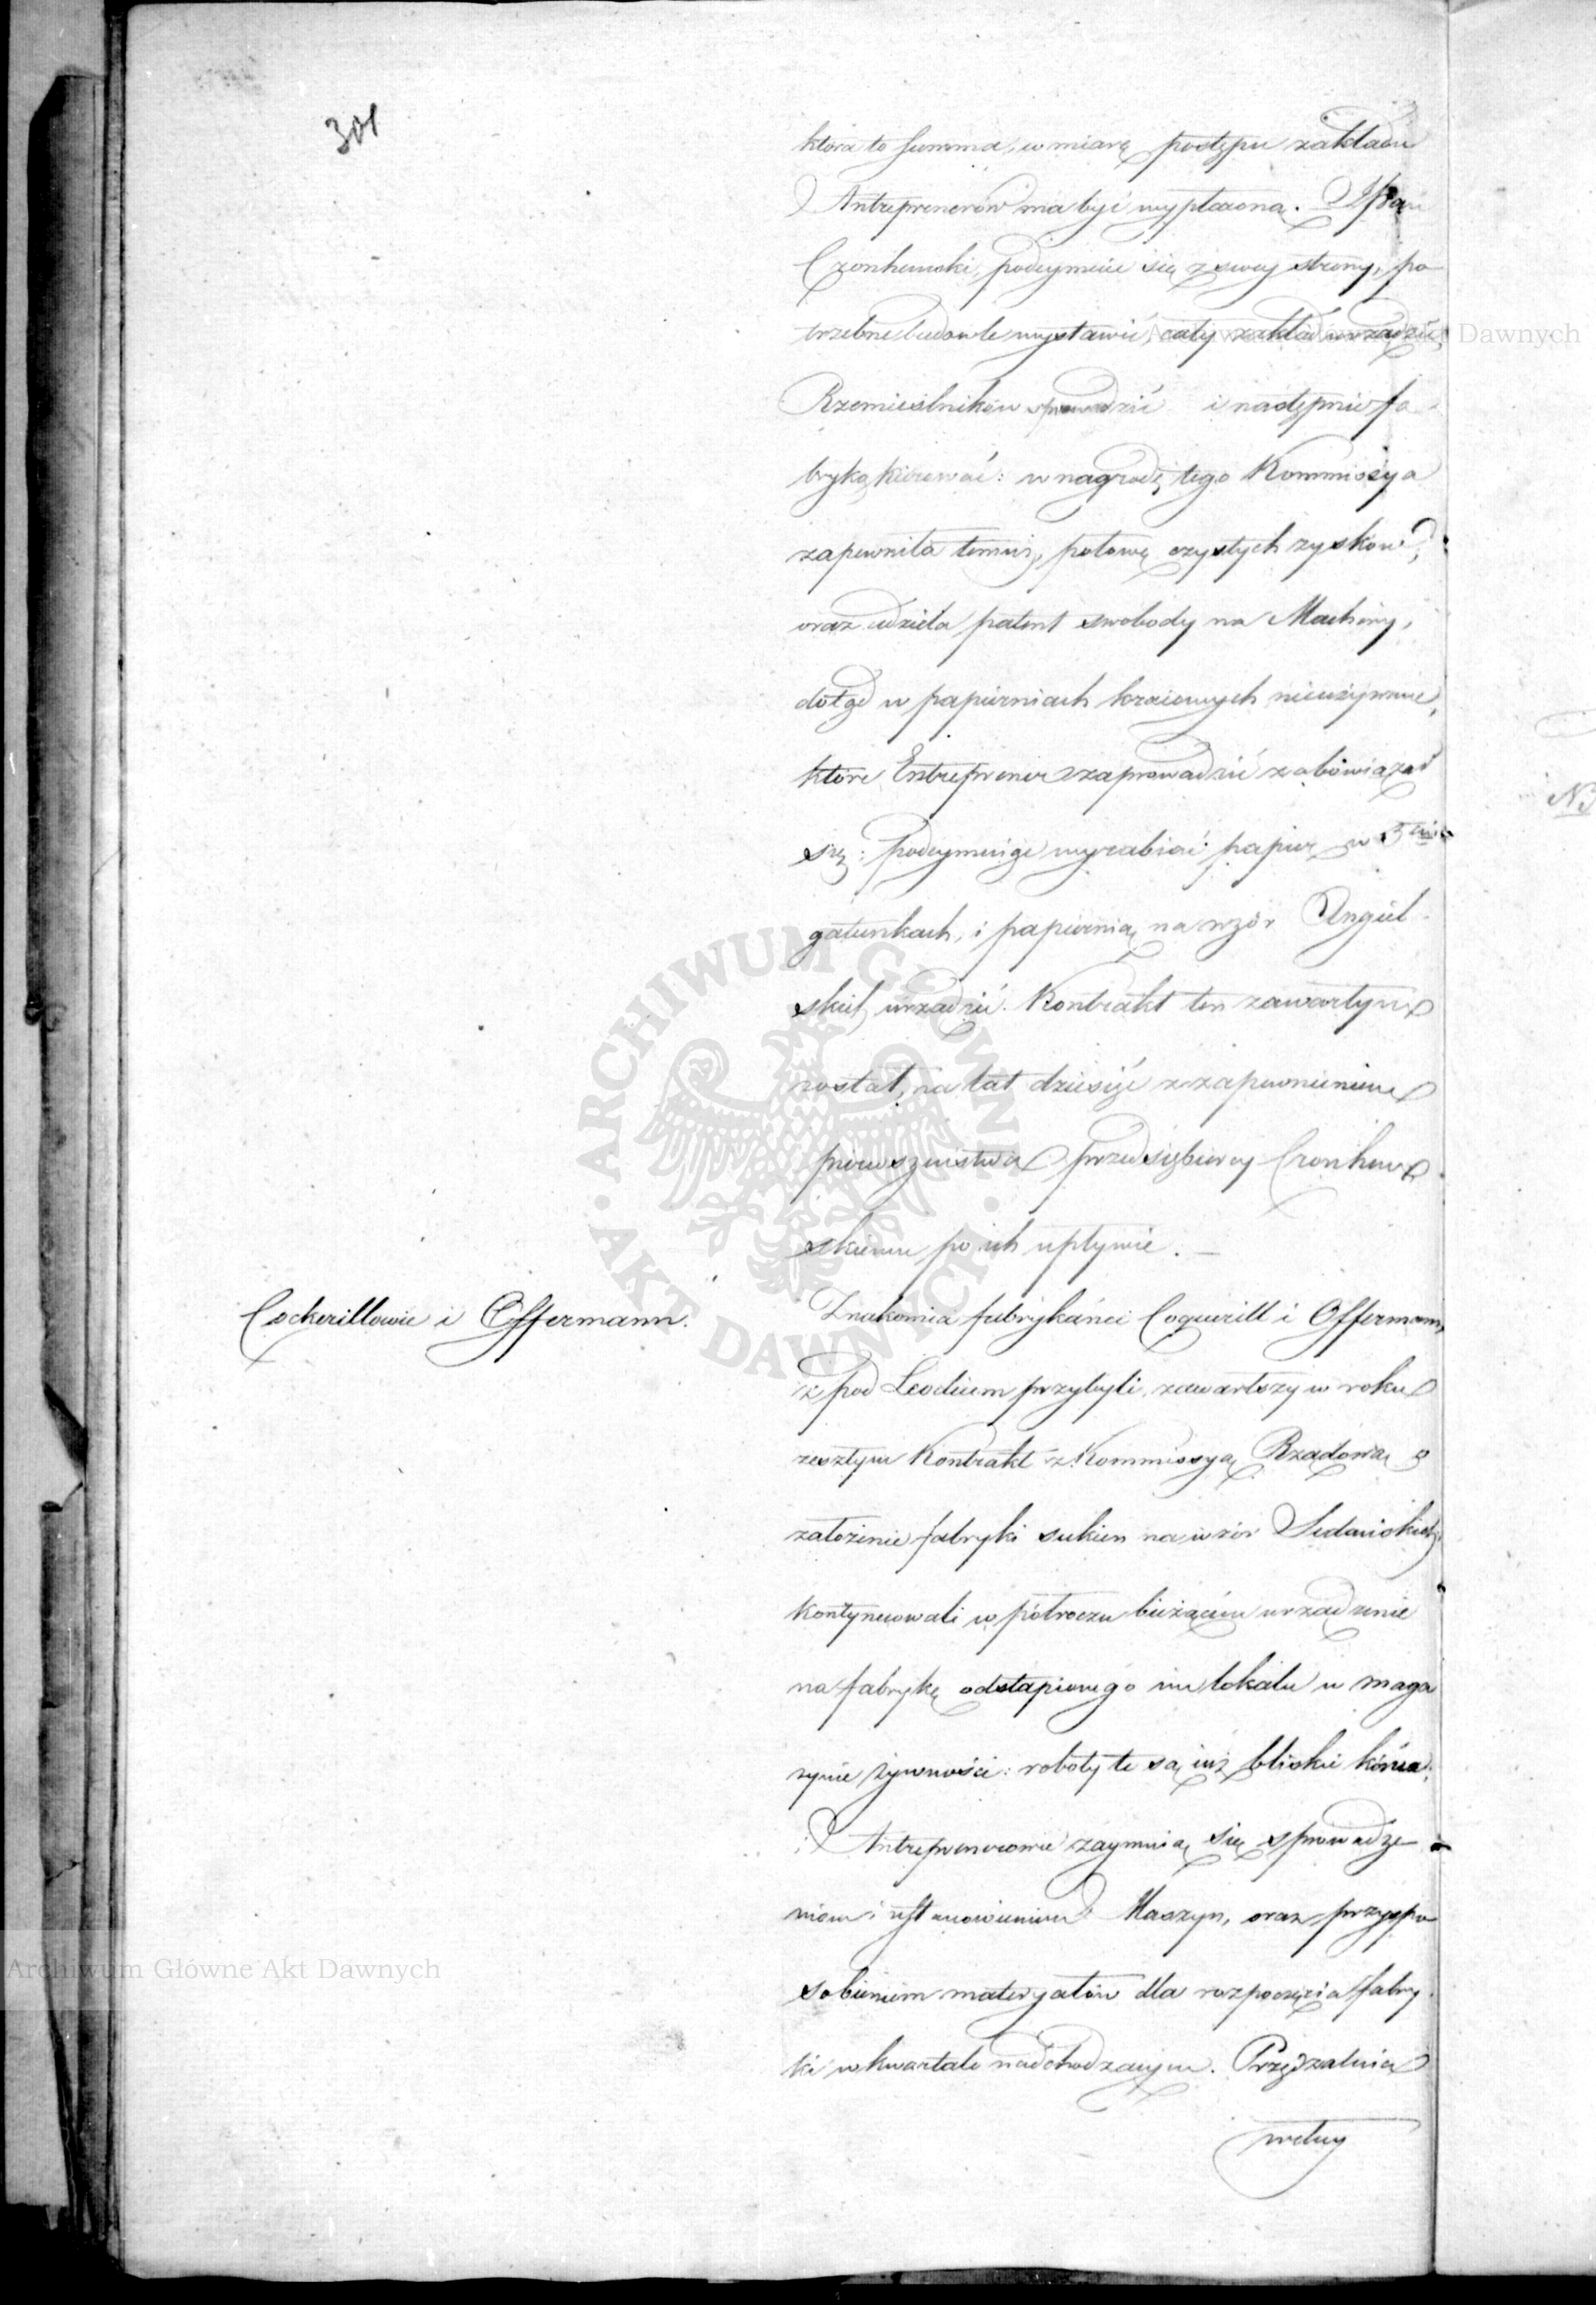 301
która to Summa, w miarę postępu zakładu
Antreprenerów ma być wypłaconą.
podeymuie się z swey strony, po
trzebne budowle wystawić, cały zakład urządzić,
Rzemieślników sprowadzić i następnie fa
bryką kierować: w nagrodę tego Kommissya
zapewniła temuż, połowę czystych zysków,
oraz udziela patent swobody na Machiny,
dotąd w papierniach kraiowych nieużywane,
które Entreprener zaprowadzić zobowiązał
się: podeymuiąc wyrabiać papier w
gatunkach, i papiernią na wzór Angiel
skich urządzić. Kontrakt ten zawartym
został, na lat dziesięć z zapewnieniem
pierwszeństwa przedsiębiercy Cronhew
skiemu po ich upływie. —
Cockerillowie i Offermann.
Znakomici fabrykanci Coquerill i Offermann,
z pod Leodium przybyli, zawarłszy w roku
zeszłym Kontrakt z Kommissyą Rządową o
założenie fabryki sukien na wzór Sedańskich,
kontynuowali w półroczu bieżącém urządzenie
na fabrykę odstąpionego im lokalu w maga
zynie żywności: roboty te są iuż bliskie końca,
i Antreprenerowie zaymuią się sprowadze-
niem i ustanowieniem Maszyn, oraz przyspo
sobieniem materyałów dla rozpoczęcia fabry
ki w kwartale nadchodzącym. Przędzalnia
wełny
Archiwum Główne Akt Dawnych
ARCHIWUM GŁÓWNE AKT DAWNYCH
Archiwum Główne Akt Dawnych